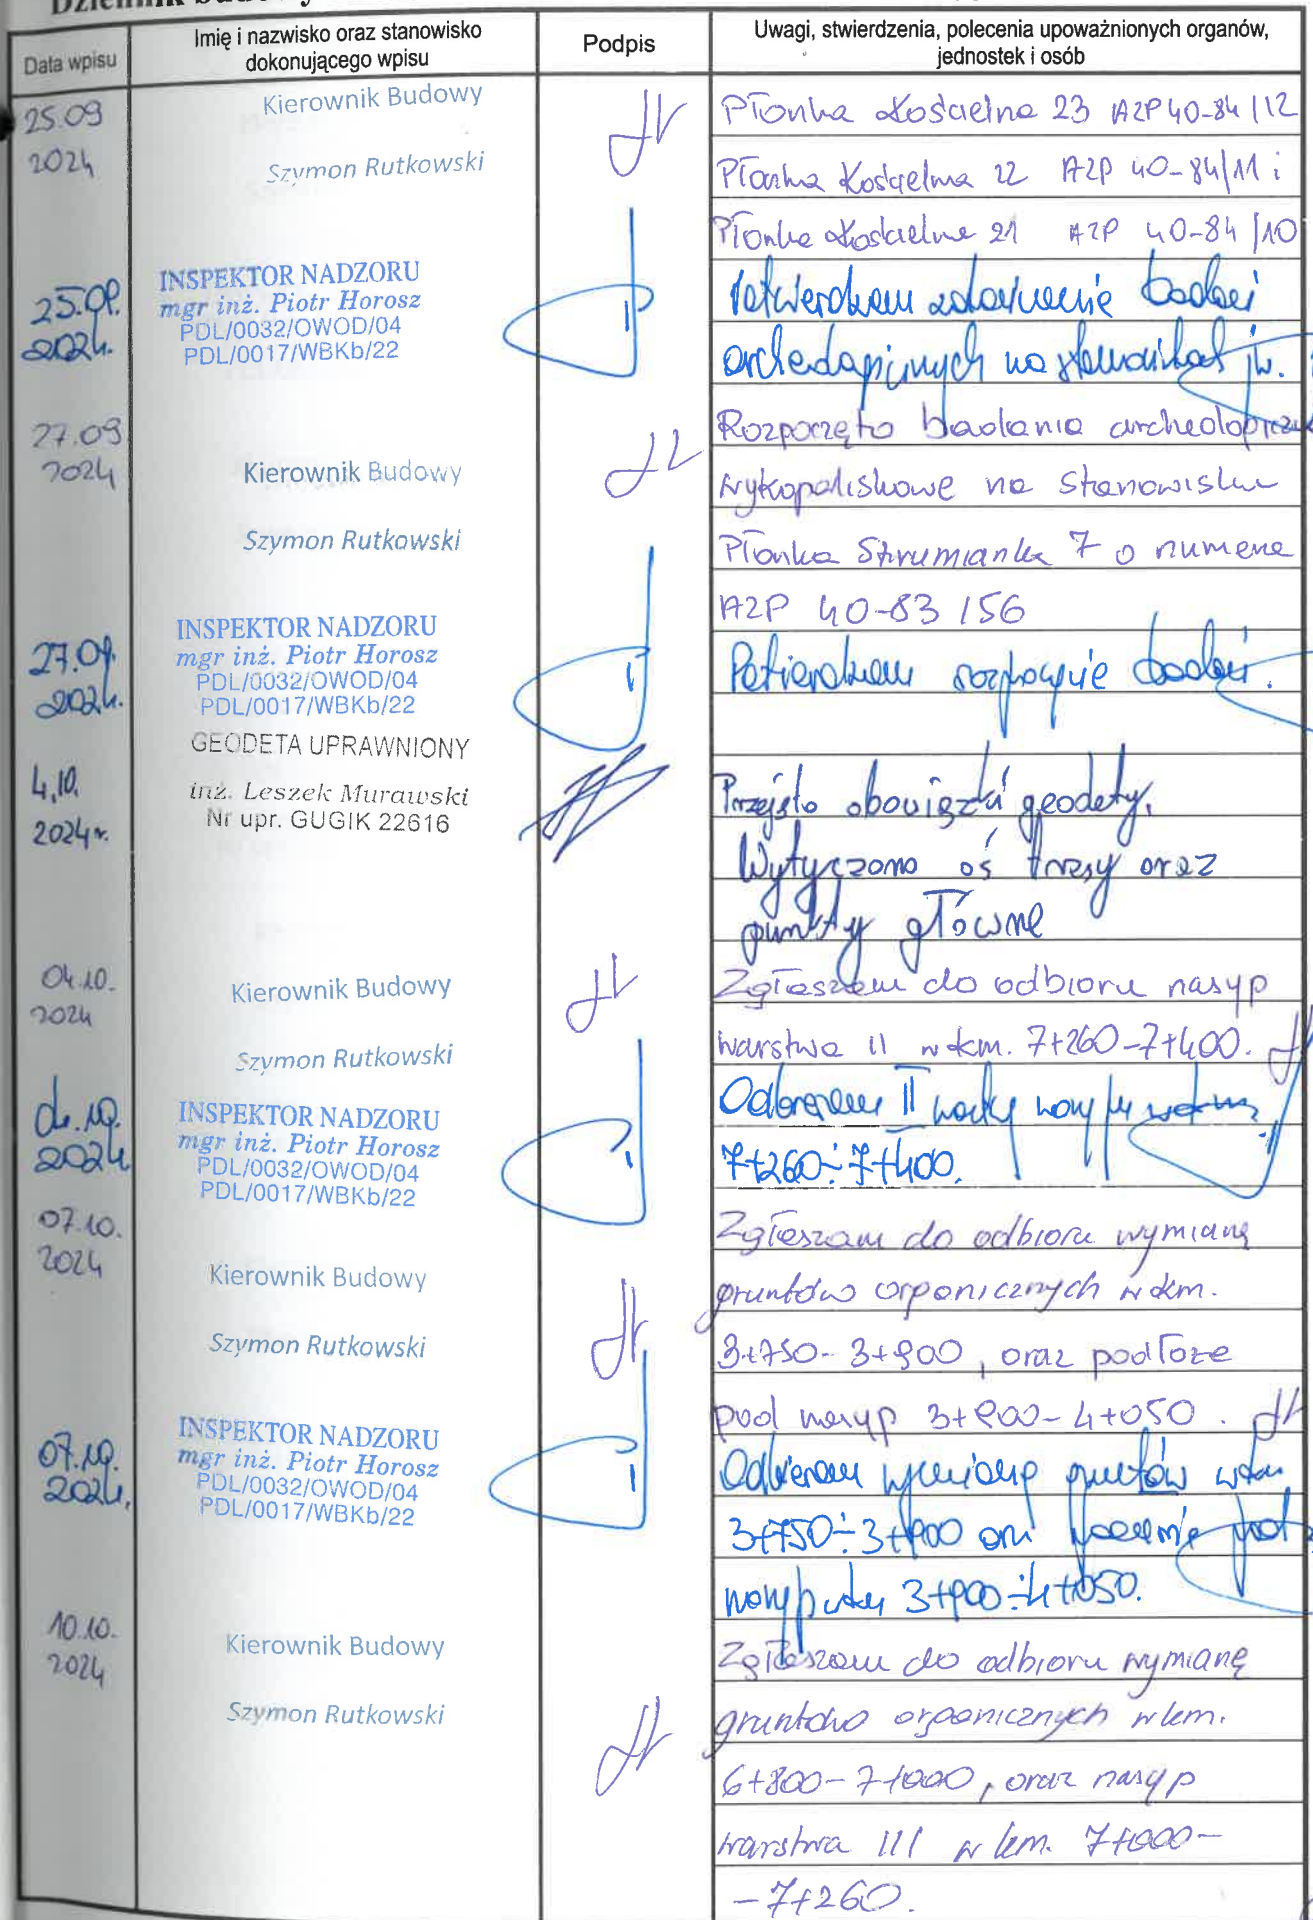 Dziennik budowy
Data wpisu
Imię i nazwisko oraz stanowisko
dokonującego wpisu
Podpis
Uwagi, stwierdzenia, polecenia upoważnionych organów,
jednostek i osób
25.09
2024
Kierownik Budowy
Szymon Rutkowski
Płonka Kościelna 23 AZP 40-84/12
Płonka Kościelna 22 AZP 40-84/11 i
Płonka Kościelna 21 AZP 40-84/10
25.09.
2024.
INSPEKTOR NADZORU
mgr inż. Piotr Horosz
PDL/0032/OWOD/04
PDL/0017/WBKb/22
badań
archeologicznych na stanowiskach jw.
27.09
2024
Kierownik Budowy
Szymon Rutkowski
Rozpoczęto badania archeologiczn
wykopaliskowe na stanowisku
Płonka Strumianka 7 o numerze
AZP 40-83/56
27.09.
2024.
INSPEKTOR NADZORU
mgr inż. Piotr Horosz
PDL/0032/OWOD/04
PDL/0017/WBKb/22
Potwierdzam rozpoczęcie badań.
4.10.
2024r.
GEODETA UPRAWNIONY
inż. Leszek Murawski
Nr upr. GUGIK 22616
Przejęto obowiązki geodety.
Wytyczono oś trasy oraz
punkty główne
04.10.
2024
Kierownik Budowy
Szymon Rutkowski
Zgłaszam do odbioru nasyp
warstwa II w km. 7+260-7+400.
04.10.
2024
INSPEKTOR NADZORU
mgr inż. Piotr Horosz
PDL/0032/OWOD/04
PDL/0017/WBKb/22
Odbieram II
7+260÷7+400.
07.10.
2024
Kierownik Budowy
Szymon Rutkowski
Zgłaszam do odbioru wymianę
gruntów organicznych w km.
3+750-3+900, oraz podłoże
pod nasyp 3+900-4+050.
07.10.
2024.
INSPEKTOR NADZORU
mgr inż. Piotr Horosz
PDL/0032/OWOD/04
PDL/0017/WBKb/22
Odbieram wymianę gruntów w km
3+750÷3+900 pod
3+900÷4+050.
10.10.
2024
Kierownik Budowy
Szymon Rutkowski
Zgłaszam do odbioru wymianę
gruntów organicznych w km.
6+800-7+000, oraz nasyp
warstwa III w km. 7+000-
-7+260.